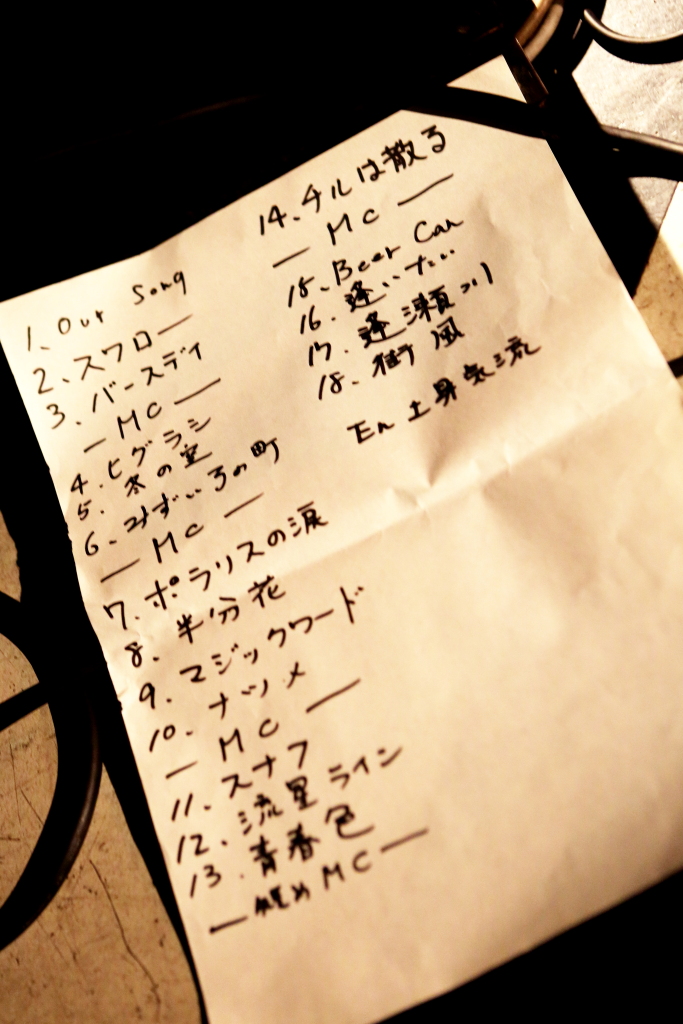 1. Our Song
2. スワロー
3. バースデイ
— MC —
4. ヒグラシ
5. 冬の空
6. みずいろの町
— MC —
7. ポラリスの涙
8. 半分花
9. マジックワード
10. ナツメ
— MC —
11. スナフ
12. 流星ライン
13. 青春色
— MC —
14. チルは散る
— MC —
15. Beer Can
16. 逢いたい
17. 逢瀬川
18. 街風
En 上昇気流